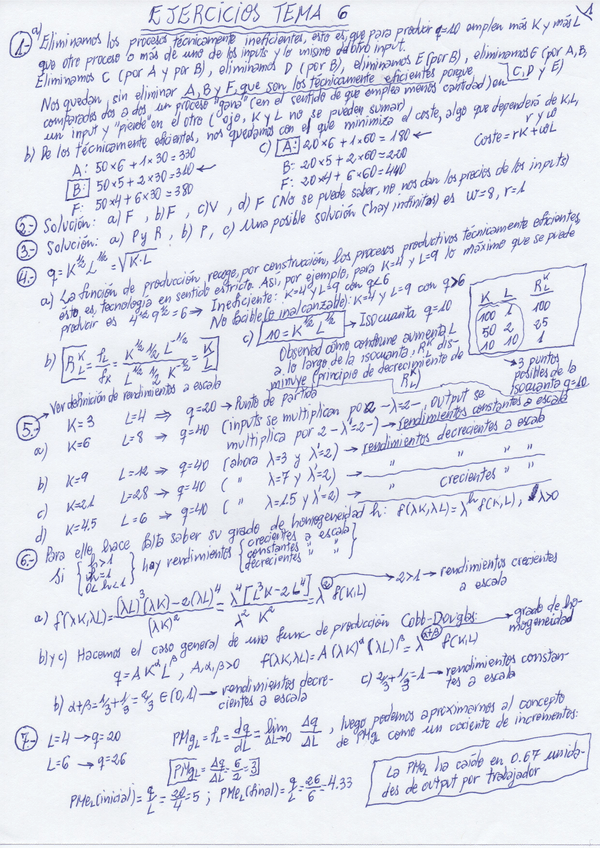 EJERCICIOS TEMA 6
1
1.- a) Eliminamos los procesos técnicamente ineficientes, esto es, que para producir q=10 emplen más K y más L
que otro proceso o más de uno de los inputs y lo mismo de otro input.
Eliminamos C (por A y por B), eliminamos D (por B), eliminamos E (por B), eliminamos G (por A, B,
C, D y E)
Nos quedan, sin eliminar A, B y F, que son los técnicamente eficientes porque
comparados dos a dos un proceso "gana" (en el sentido de que emplea menos cantidad) en
un input y "pierde" en el otro (ojo, K y L no se pueden sumar)
b) De los técnicamente eficientes, nos quedamos con el que minimiza el coste, algo que dependerá de K, L,
r y w
Coste = rK + wL
A: 50×6 + 1×30 = 330
B: 50×5 + 2×30 = 310 ←
F: 50×4 + 6×30 = 380
c) A: 20×6 + 1×60 = 180 ←
B: 20×5 + 2×60 = 220
F: 20×4 + 6×60 = 440
2.- Solución: a) F, b) F, c) V, d) F (No se puede saber, no nos dan los precios de los inputs)
3.- Solución: a) P y R, b) P, c) Una posible solución (hay infinitas) es w=8, r=1
4.- q = K^1/2 L^1/2 = √K·L
a) La función de producción recoge, por construcción, los procesos productivos técnicamente eficientes,
esto es, tecnología en sentido estricto. Así, por ejemplo, para K=4 y L=9 lo máximo que se puede
producir es 4^1/2 9^1/2 = 6 → Ineficiente: K=4 y L=9 con q<6
No factible (o inalcanzable): K=4 y L=9 con q>6
b) R^K_L = f_L/f_K = K^1/2 1/2 L^-1/2 / L^1/2 1/2 K^-1/2 = K/L
c) 10 = K^1/2 L^1/2 → Isocuanta q=10
Observad cómo conforme aumenta L
a lo largo de la isocuanta, R^K_L dis-
minuye (principio de decrecimiento de
R^K_L)
K L R^K_L
100 1 100
50 2 25
10 10 1
→ 3 puntos
posibles de la
isocuanta q=10
5.- → Ver definición de rendimientos a escala
K=3 L=4 ⇒ q=20 → Punto de partida
a) K=6 L=8 ⇒ q=40 (inputs se multiplican por 2 -λ=2-, output se
multiplica por 2 -λ'=2-) → rendimientos constantes a escala
b) K=9 L=12 → q=40 (ahora λ=3 y λ'=2) → rendimientos decrecientes a escala
c) K=21 L=28 → q=40 ( " λ=7 y λ'=2) → " " "
d) K=4.5 L=6 → q=40 ( " λ=1.5 y λ'=2) → " crecientes " "
6.- Para ello, hace falta saber su grado de homogeneidad h: f(λK, λL) = λ^h f(K, L), λ>0
Si { h>1 h=1 0<h<1 } hay rendimientos { crecientes a escala constantes " " decrecientes " "
a) f(λK, λL) = (λL)^3 (λK) - 2(λL)^4 / (λK)^2 = λ^4 [L^3 K - 2L^4] / λ^2 K^2 = λ^2 f(K, L) → 2>1 → rendimientos crecientes
a escala
b) y c) Hacemos el caso general de una func. de producción Cobb-Douglas:
q = A K^α L^β, A, α, β > 0 f(λK, λL) = A (λK)^α (λL)^β = λ^α+β f(K, L) → grado de ho-
mogeneidad
b) α+β = 1/3 + 1/3 = 2/3 ∈ (0,1) → rendimientos decre-
cientes a escala
c) 2/3 + 1/3 = 1 → rendimientos constan-
tes a escala
7.- L=4 → q=20
L=6 → q=26
PMg_L = f_L = dq/dL = lim ΔL→0 Δq/ΔL, luego podemos aproximarnos al concepto
de PMg_L como un cociente de incrementos:
PMg_L = Δq/ΔL = 6/2 = 3
PMe_L (inicial) = q/L = 20/4 = 5 ; PMe_L (final) = q/L = 26/6 = 4.33
La PMe_L ha caído en 0.67 unida-
des de output por trabajador